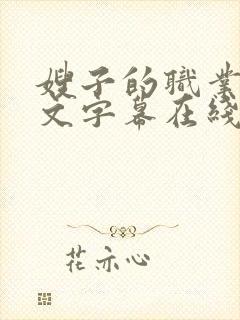 嫂子的職業
文字幕在线
花亦心